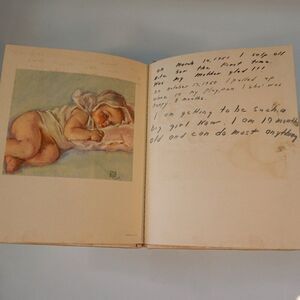 on March 10, 1951 I sleep all
nite for the first time.
Was my mother glad !!!
on october 15, 1951 I pulled up
on my playpen I was
happy. 8 months
I am getting to be such a
big girl now. I am 19 months
old and can do most anything